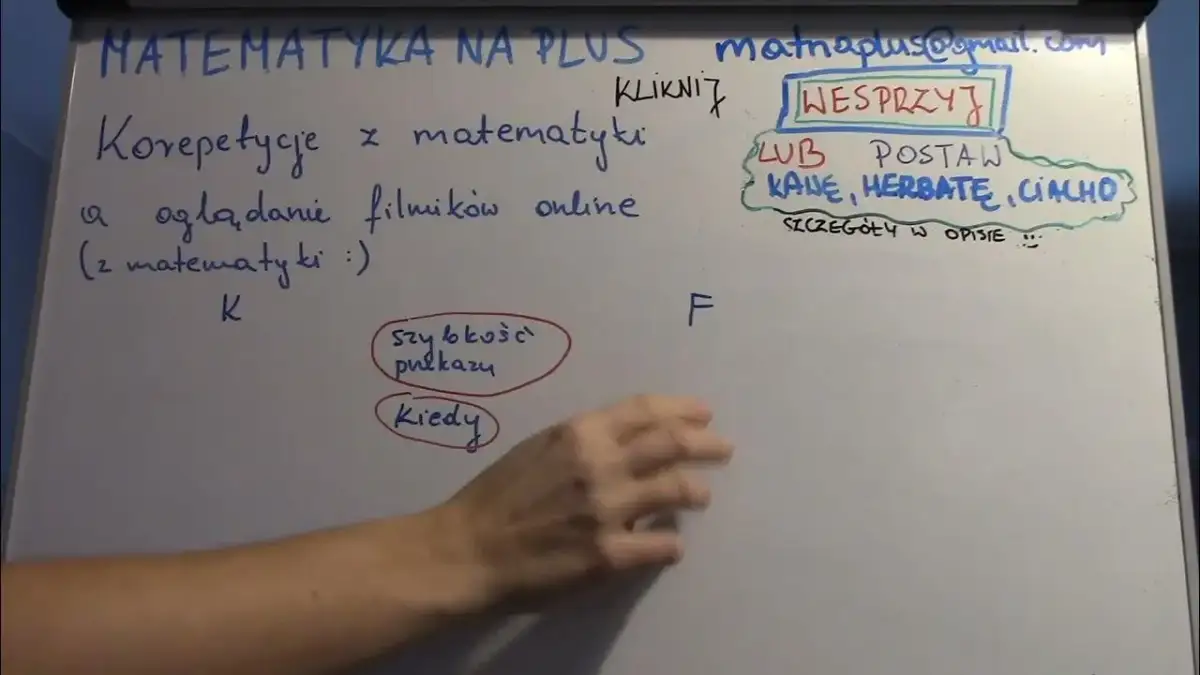 MATEMATYKA NA PLUS
matnaplus@gmail.com
KLIKNIJ
WESPRZYJ
LUB POSTAW
KAWĘ, HERBATĘ, CIACHO
SZCZEGÓŁY W OPISIE :)
Korepetycje z matematyki
a oglądanie filmików online
(z matematyki :)
K
F
szybkość
przekazu
Kiedy